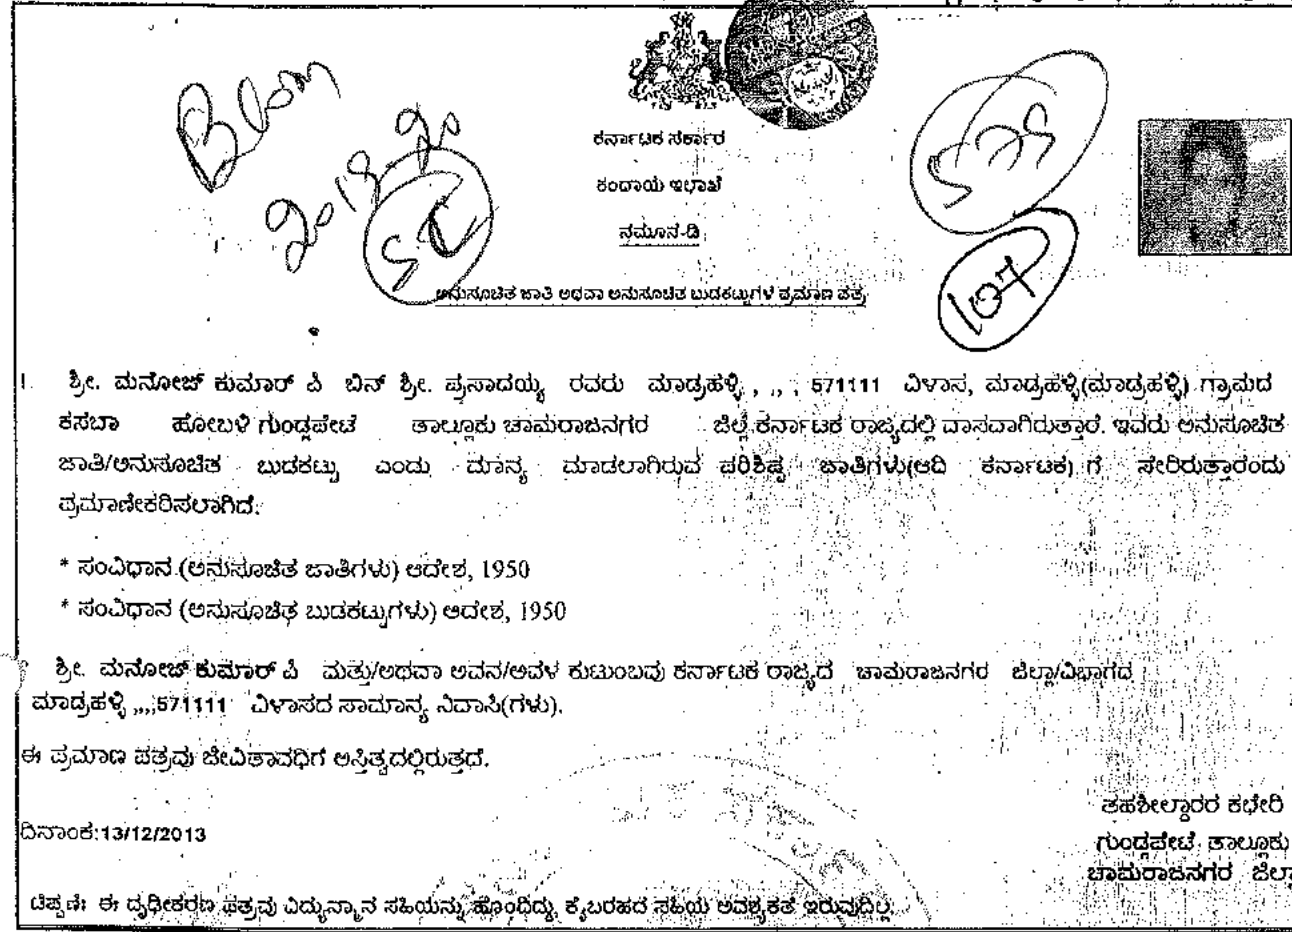 ಕರ್ನಾಟಕ ಸರ್ಕಾರ
ಕಂದಾಯ ಇಲಾಖೆ
ನಮೂನೆ-ಡಿ
2019-20
SC
107
ಅನುಸೂಚಿತ ಜಾತಿ ಅಥವಾ ಅನುಸೂಚಿತ ಬುಡಕಟ್ಟುಗಳ ಪ್ರಮಾಣ ಪತ್ರ
1. ಶ್ರೀ. ಮನೋಜ್ ಕುಮಾರ್ ಪಿ ಬಿನ್ ಶ್ರೀ. ಪ್ರಸಾದಯ್ಯ ರವರು ಮಾಡ್ರಹಳ್ಳಿ , ,, , 571111 ವಿಳಾಸ, ಮಾಡ್ರಹಳ್ಳಿ(ಮಾಡ್ರಹಳ್ಳಿ) ಗ್ರಾಮದ
ಕಸಬಾ ಹೋಬಳಿ ಗುಂಡ್ಲಪೇಟೆ ತಾಲ್ಲೂಕು ಚಾಮರಾಜನಗರ ಜಿಲ್ಲೆ ಕರ್ನಾಟಕ ರಾಜ್ಯದಲ್ಲಿ ವಾಸವಾಗಿರುತ್ತಾರೆ. ಇವರು ಅನುಸೂಚಿತ
ಜಾತಿ/ಅನುಸೂಚಿತ ಬುಡಕಟ್ಟು ಎಂದು ಮಾನ್ಯ ಮಾಡಲಾಗಿರುವ ಪರಿಶಿಷ್ಟ ಜಾತಿಗಳು(ಆದಿ ಕರ್ನಾಟಕ) ಗೆ ಸೇರಿರುತ್ತಾರೆಂದು
ಪ್ರಮಾಣೀಕರಿಸಲಾಗಿದೆ.
* ಸಂವಿಧಾನ (ಅನುಸೂಚಿತ ಜಾತಿಗಳು) ಆದೇಶ, 1950
* ಸಂವಿಧಾನ (ಅನುಸೂಚಿತ ಬುಡಕಟ್ಟುಗಳು) ಆದೇಶ, 1950
ಶ್ರೀ. ಮನೋಜ್ ಕುಮಾರ್ ಪಿ ಮತ್ತು/ಅಥವಾ ಅವನ/ಅವಳ ಕುಟುಂಬವು ಕರ್ನಾಟಕ ರಾಜ್ಯದ ಚಾಮರಾಜನಗರ ಜಿಲ್ಲಾ/ವಿಭಾಗದ
ಮಾಡ್ರಹಳ್ಳಿ ,,,,571111 ವಿಳಾಸದ ಸಾಮಾನ್ಯ ನಿವಾಸಿ(ಗಳು).
ಈ ಪ್ರಮಾಣ ಪತ್ರವು ಜೀವಿತಾವಧಿಗೆ ಅಸ್ತಿತ್ವದಲ್ಲಿರುತ್ತದೆ.
ತಹಶೀಲ್ದಾರರ ಕಛೇರಿ
ದಿನಾಂಕ:13/12/2013
ಗುಂಡ್ಲಪೇಟೆ ತಾಲ್ಲೂಕು
ಚಾಮರಾಜನಗರ ಜಿಲ್ಲಾ
ಟಿಪ್ಪಣಿ: ಈ ದೃಢೀಕರಣ ಪತ್ರವು ವಿದ್ಯುನ್ಮಾನ ಸಹಿಯನ್ನು ಹೊಂದಿದ್ದು, ಕೈಬರಹದ ಸಹಿಯ ಅವಶ್ಯಕತೆ ಇರುವುದಿಲ್ಲ.